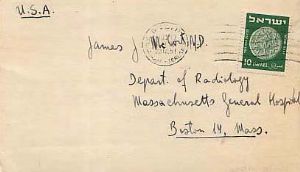 U.S.A.
ישראל
10 ISRAEL
James J. McCort M.D.
Depart. of Radiology
Massachusetts General Hospital
Boston 14, Mass.